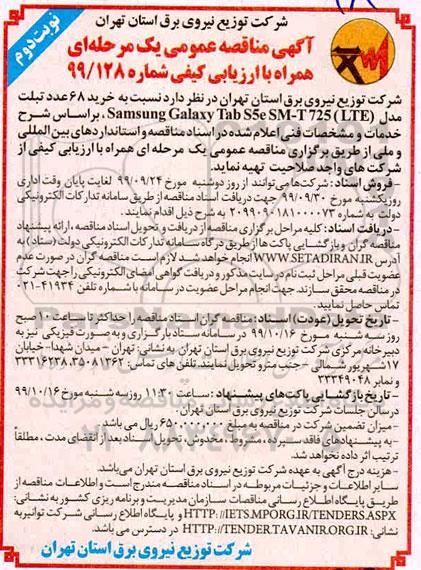 نوبت دوم
شرکت توزیع نیروی برق استان تهران
آگهی مناقصه عمومی یک مرحله‌ای
همراه با ارزیابی کیفی شماره ۹۹/۱۲۸
شرکت توزیع نیروی برق استان تهران در نظر دارد نسبت به خرید ۶۸ عدد تبلت
مدل Samsung Galaxy Tab S5e SM-T 725 (LTE)، بر اساس شرح
خدمات و مشخصات فنی اعلام شده در اسناد مناقصه و استانداردهای بین المللی
و ملی از طریق برگزاری مناقصه عمومی یک مرحله ای همراه با ارزیابی کیفی از
شرکت های واجد صلاحیت تهیه نماید.
- فروش اسناد: شرکت‌ها می‌توانند از روز دوشنبه مورخ ۹۹/۰۹/۲۴ لغایت پایان وقت اداری
روز یکشنبه مورخ ۹۹/۰۹/۳۰ جهت دریافت اسناد مناقصه از طریق سامانه تدارکات الکترونیکی
دولت به شماره ۲۰۹۹۰۹۰۱۸۱۰۰۰۰۷۳ به شرح ذیل اقدام نمایند.
- دریافت اسناد: کلیه مراحل برگزاری مناقصه از دریافت و تحویل اسناد مناقصه، ارائه پیشنهاد
مناقصه گران و بازگشایی پاکت ها از طریق درگاه سامانه تدارکات الکترونیکی دولت (ستاد) به
آدرس WWW.SETADIRAN.IR انجام خواهد شد. لازم است مناقصه گران در صورت عدم
عضویت قبلی مراحل ثبت نام در سایت مذکور و دریافت گواهی امضای الکترونیکی را جهت شرکت
در مناقصه محقق سازند. جهت انجام مراحل عضویت در سامانه با شماره تلفن ۴۱۹۳۴-۰۲۱
تماس حاصل نمایید.
- تاریخ تحویل (عودت) اسناد: مناقصه گران اسناد مناقصه را حداکثر تا ساعت ۱۰ صبح
روز سه شنبه مورخ ۹۹/۱۰/۱۶ در سامانه ستاد بارگزاری و به صورت فیزیکی نیز به
دبیرخانه مرکزی شرکت توزیع نیروی برق استان تهران به نشانی: تهران - میدان شهدا - خیابان
۱۷ شهریور شمالی - جنب مترو تحویل نمایند. تلفن های تماس: ۳۵۰۸۱۳۶۲، ۳۳۳۱۶۳۳۸
و نمابر ۳۳۳۴۹۰۴۸
- تاریخ بازگشایی پاکت‌های پیشنهاد: ساعت ۱۱:۳۰ روز سه شنبه مورخ ۹۹/۱۰/۱۶
در سالن جلسات شرکت توزیع نیروی برق استان تهران.
- میزان تضمین شرکت در مناقصه به مبلغ ۶۵۰۰۰۰۰۰۰ ریال می باشد.
- به پیشنهادهای فاقد سپرده، مشروط، مخدوش، تحویل اسناد بعد از انقضای مدت، مطلقاً
ترتیب اثر داده نخواهد شد.
- هزینه درج آگهی به عهده شرکت توزیع نیروی برق استان تهران می‌باشد.
سایر اطلاعات و جزئیات مربوطه در اسناد مناقصه مندرج است و اطلاعات مناقصه از
طریق پایگاه اطلاع رسانی مناقصات سازمان مدیریت و برنامه ریزی کشور به نشانی:
HTTP://IETS.MPORG.IR/TENDERS.ASPX و پایگاه اطلاع رسانی شرکت توانیر به
نشانی: HTTP://TENDER.TAVANIR.ORG.IR در دسترس می باشد.
شرکت توزیع نیروی برق استان تهران